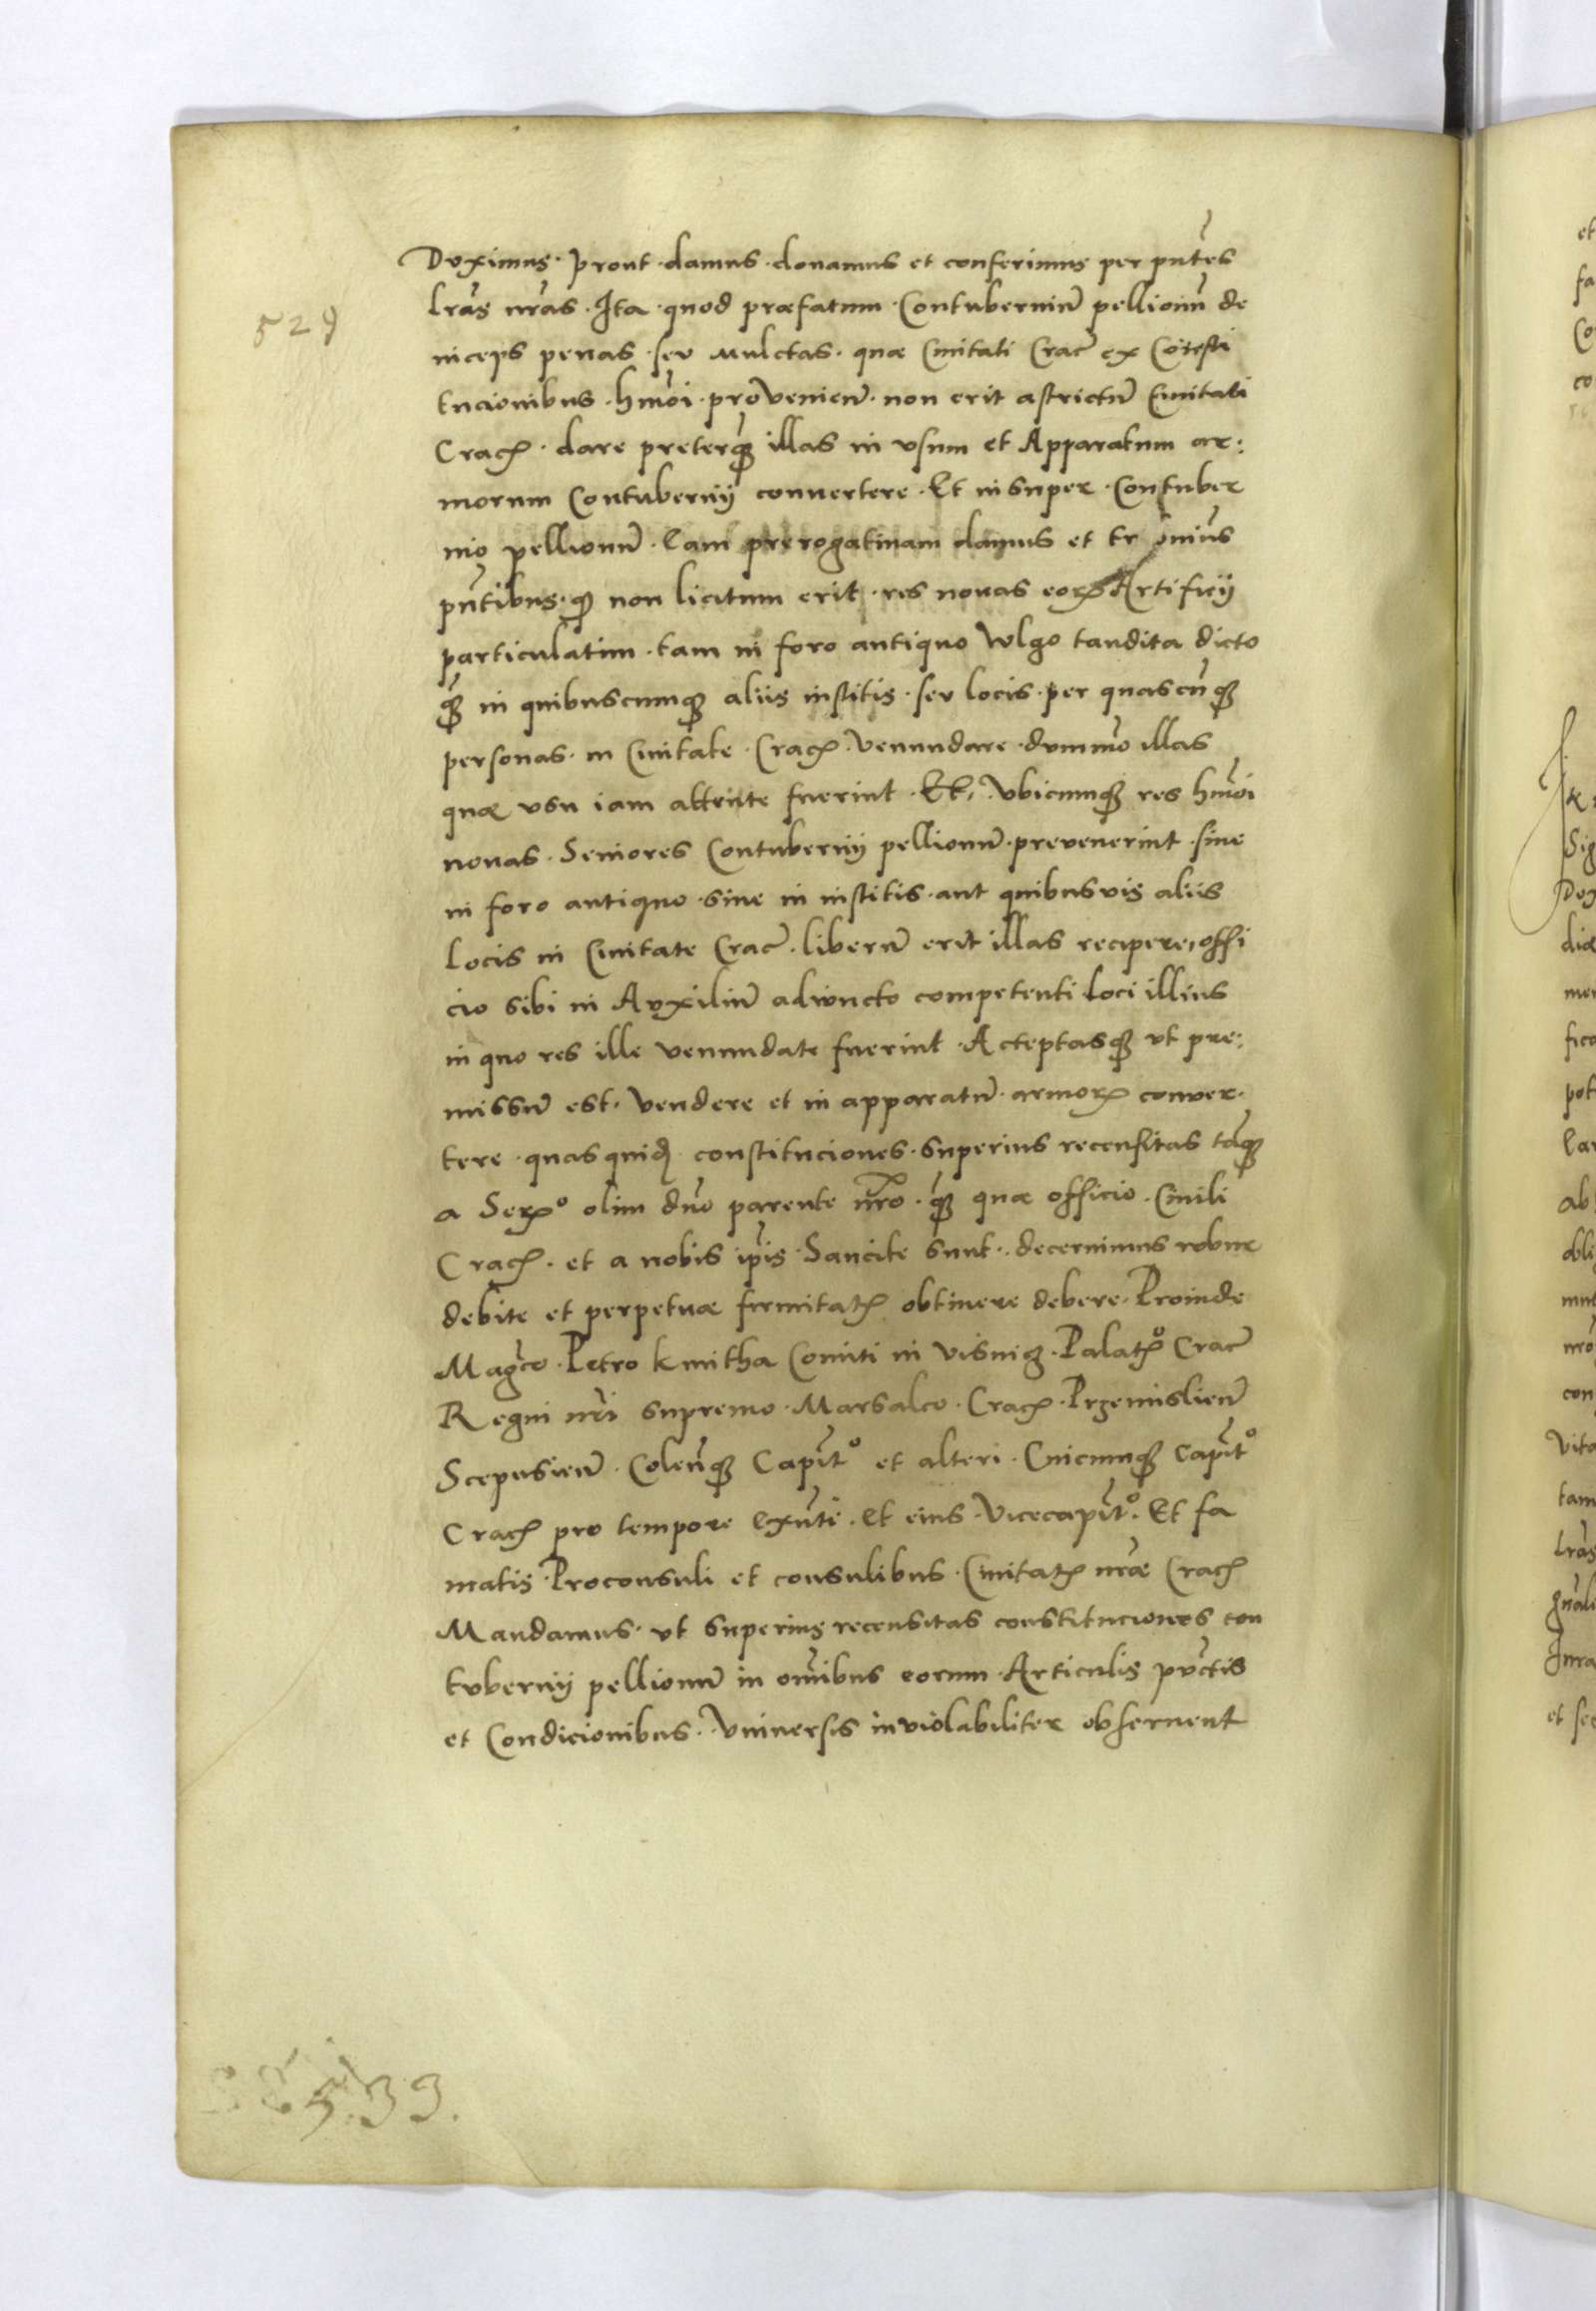 Duximus · prout · damus · donamus et conferimus per pntes
lras nras · Ita · quod præfatum · Contuberniu̅ pellionu̅ de
inceps penas · seu mulctas · quæ Ciuitati Crac̅ ex Co̅testi
tucionibus · hmoi · prouenien̅ · non erit astrictu̅ Ciuitati
Crac̅ · dare preterq̅ illas in vsum et Apparatum ar:
morum Contubernij conuertere · Et insuper · Contuber
nio pellionu̅ · Eam prerogatiuam damus et
pn̅tibus · q non licitum erit · res nouas eorꝝ Artificij
particulatim · tam in foro antiquo wlgo tandita dicto
q̅ȝ in quibuscumqȝ aliis institis · seu locis · per quascu̅qȝ
personas · in Ciuitate · Crac̅ · venundare · dummo illas
quæ vsu iam attrite fuerint · Et, · vbicumqȝ res hmoi
nouas · Seniores Contubernij pellionu̅ · prevenerint · siue
in foro antiquo · siue in institis · aut quibusvis aliis
Locis in Ciuitate Crac̅ · liberu̅ erit illas recipere, offi
cio sibi in Auxiliu̅ adiuncto competenti loci illius
in quo res ille venundate fuerint · Acceptasqȝ vt pre:
missu̅ est · vendere et in apparatu̅ · armorꝝ conver·
tere · quas quid̅ constituciones · superius recensitas ta̅qȝ
a Serꝝº olim dn̅o parente nr̅o · q̅ȝ quæ officio · Ciuili
Crac̅ · et a nobis ip̅is · Sancite sunt · decernimus robur
debite et perpetuæ firmitatꝭ obtinere debere · Proinde
Mag̅co · Petro kmitha Comiti in visnicȝ · Palatº Crac̅
Regni nr̅i supremo · Marsalco · Crac̅ · Przemislien̅
Scepusien̅ · Colen̅qȝ Capit̅º et alteri · Cuicumqȝ Capit̅º
Crac̅ pro tempore exn̅ti · Et eius · vicecapit̅º · Et fa
matis · Proconsuli et consulibus · Ciuitatꝭ nr̅æ Crac̅
Mandamus · vt superius recensitas constituciones con
tubernij pellionu̅ in om̅ibus eorum · Articulis pu̅ctis
et Condicionibus · vniuersis inviolabiliter obseruent
529
5.39.